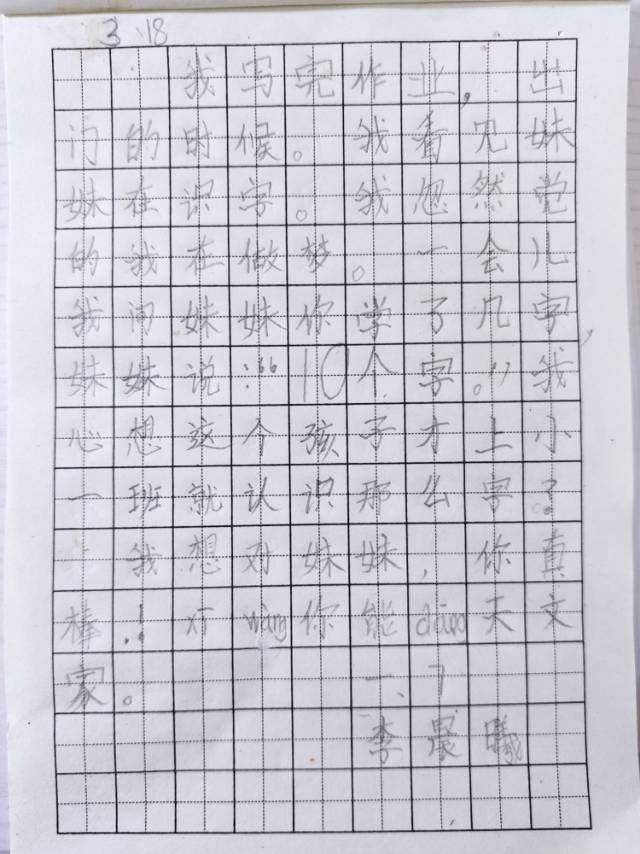 3.18
我写完作业，出
门的时候。我看见妹
妹在识字。我忽然觉
的我在做梦。一会儿
我问妹妹你学了几字，
妹妹说：“10个字。”我
心想这个孩子才上小
一班就认识那么字？
我想对妹妹，你真
棒！xī wàng你能dāng天文
家。一、7
李晨曦